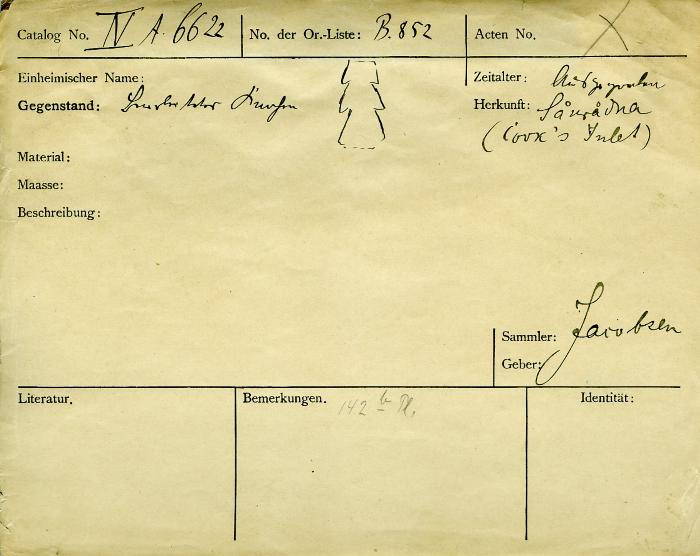 Catalog No. IV A. 6622 No. der Or.-Liste: B. 852 Acten No.
Einheimischer Name: Zeitalter: Ausgegraben
Gegenstand: Bearbeiteter Knochen Herkunft:
(Cook's Inlet)
Material:
Maasse:
Beschreibung:
Sammler: Jacobsen
Geber:
Literatur. Bemerkungen. 142 Identität: